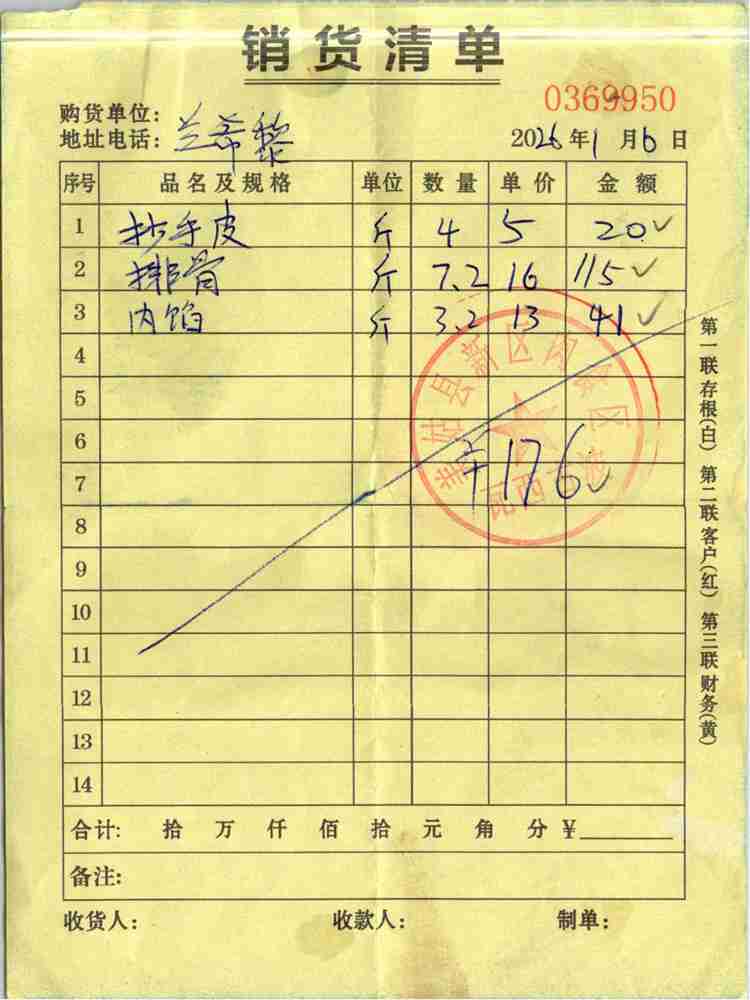 销货清单
0369950
购货单位：
地址电话：兰希黎
2026年1月6日
序号 品名及规格 单位 数量 单价 金额
1 抄手皮 斤 4 5 20✓
2 排骨 斤 7.2 16 115✓
3 肉馅 斤 3.2 13 41✓
4
5
6
7 平176✓
8
9
10
11
12
13
14
合计： 拾 万 仟 佰 拾 元 角 分 ¥
备注：
收货人： 收款人： 制单：
第一联存根(白) 第二联客户(红) 第三联财务(黄)